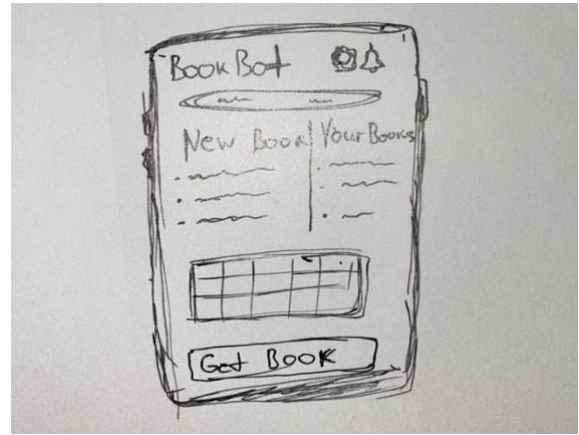 BookBot
New Book
Your Books
Get BOOK